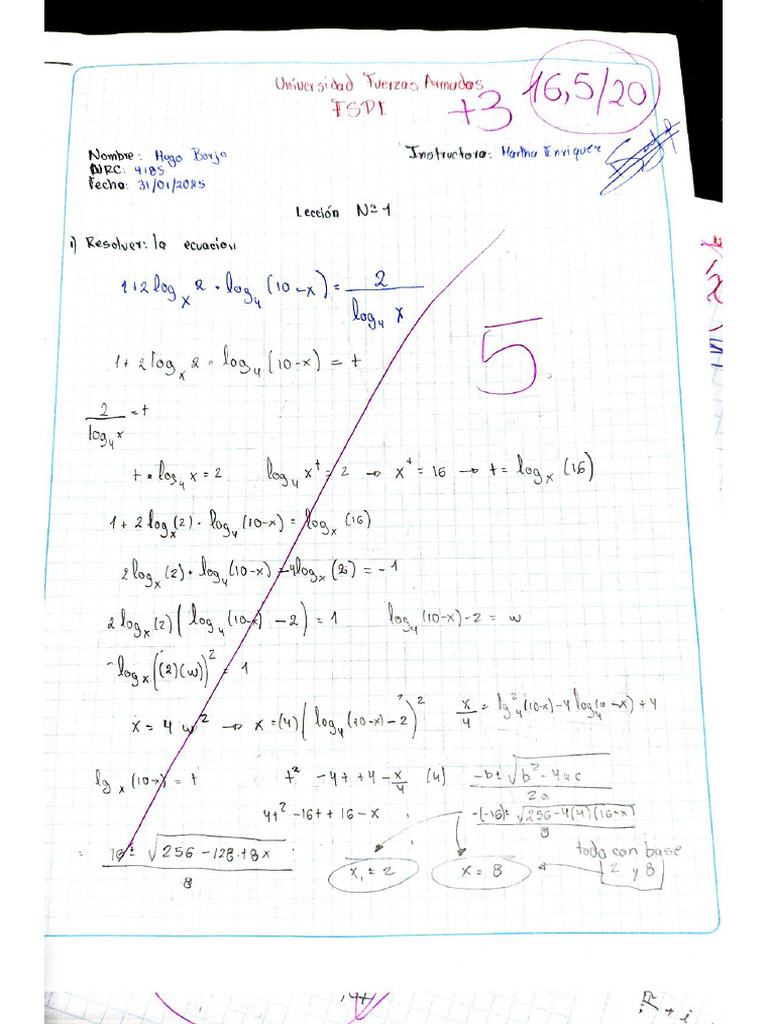 Universidad Fuerzas Armadas
ESPE
+3 16,5/20
Nombre: Hugo Borja
NRC: 4185
Fecha: 31/01/2025
Instructora: Martha Enriquez
Lección Nº 1
1) Resolver: la ecuación
1+2log_x 2 • log_4 (10-x) = 2 / log_4 x
5
1+2log_x 2 • log_4 (10-x) = t
2 / log_4 x = t
t • log_4 x = 2 log_4 x^t = 2 → x^t = 16 → t = log_x (16)
1 + 2log_x (2) • log_4 (10-x) = log_x (16)
2log_x (2) • log_4 (10-x) - 4log_x (2) = -1
2log_x (2) (log_4 (10-x) - 2) = 1 log_4 (10-x) - 2 = w
-log_x ((2)(w))^2 = 1
x = 4 w^2 → x = (4) (log_4 (10-x) - 2)^2 x/4 = lg_4^2 (10-x) - 4 log_4 (10-x) + 4
lg_x (10-x) = t t^2 - 4t + 4 - x/4 (4) -b ± √(b^2 - 4ac) / 2a
4t^2 - 16t + 16 - x -(-16) ± √(256 - 4(4)(16-x)) / 8
= 16 ± √(256 - 128 + 8x) / 8
x_1 = 2 x = 8
todo con base
2 y 8